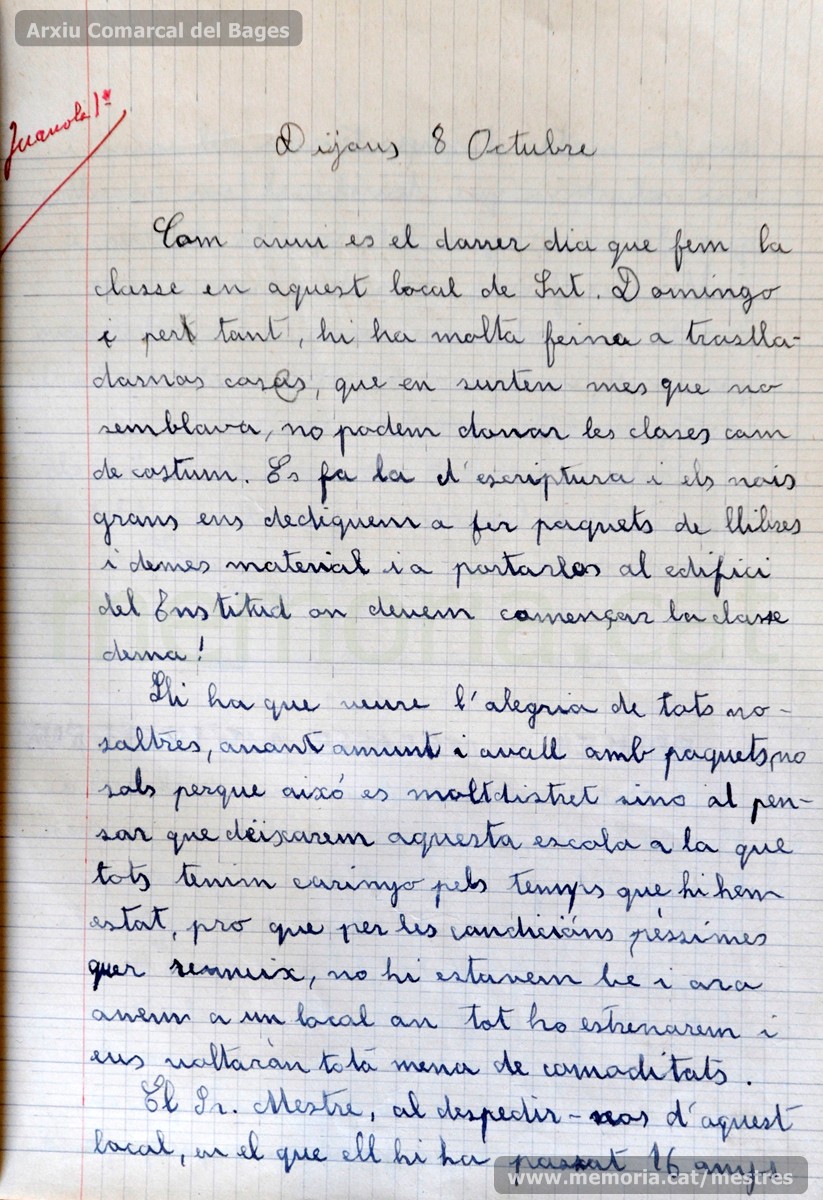 Arxiu Comarcal del Bages
Juanola 1r
Dijous 8 Octubre
Com avui es el darrer dia que fem la
classe en aquest local de Snt. Domingo
i per tant, hi ha molta feina a traslla-
darnos coses, que en surten mes que no
semblava, no podem donar les clases com
de costum. Es fa la d'escriptura i els nois
grans ens dediquem a fer paquets de llibres
i demes material i a portarlos al edifici
del Enstitud on devem començar la classe
dema!
Hi ha que veure l'alegria de tots no-
saltres, anant amunt i avall amb paquets, no
sols perque aixó es molt distret sino al pen-
sar que deixarem aquesta escola a la que
tots tenim carinyo pels temps que hi hem
estat, pro que per les condicións péssimes
quer renuix, no hi estavem be i ara
anem a un local on tot ho estrenarem i
ens voltaràn tota mena de comoditats.
El Sr. Mestre, al despedir-nos d'aquest
local, en el que ell hi ha passat 16 anys
www.memoria.cat/mestres